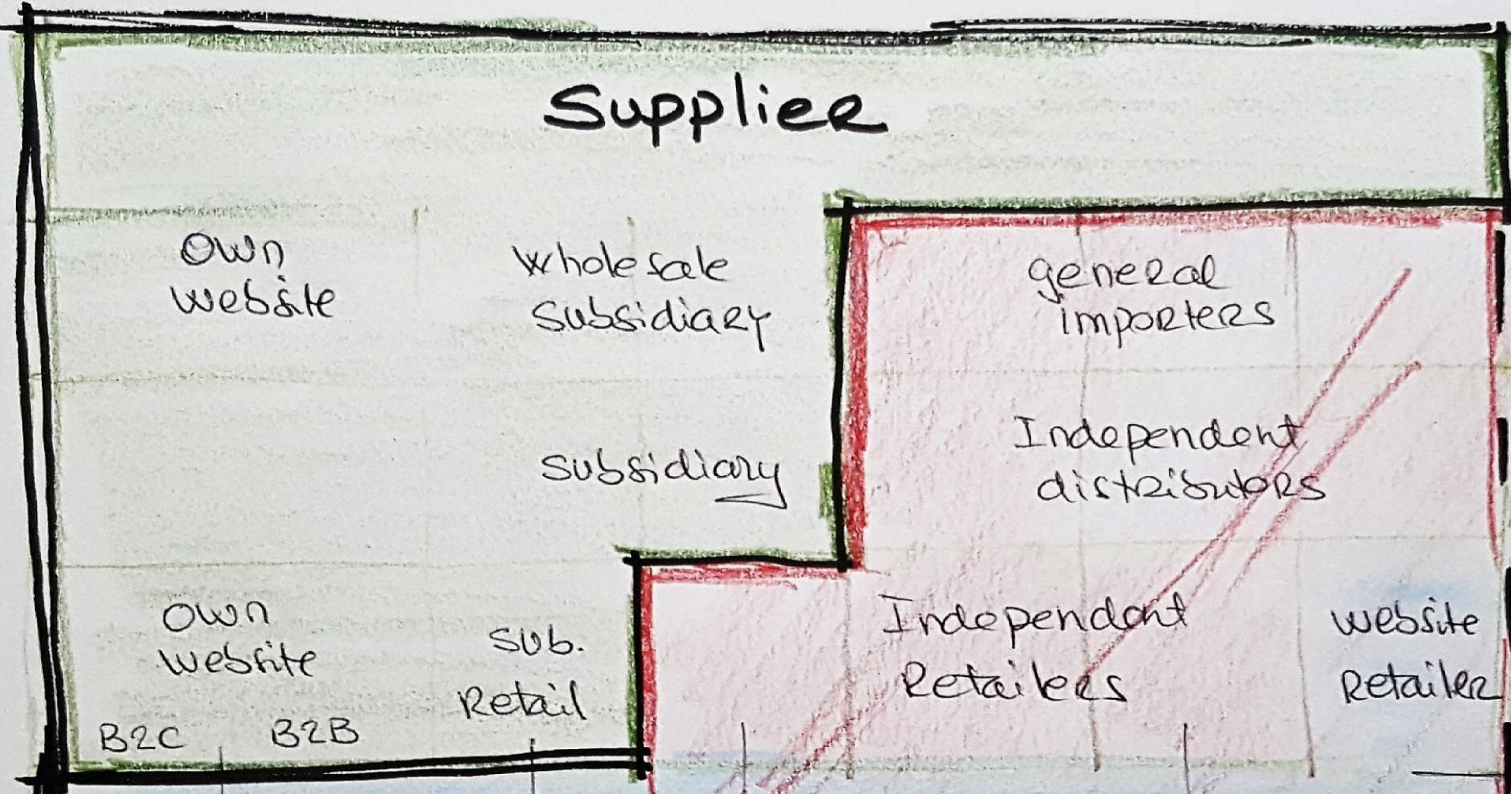 Supplier
Own
website
Wholesale
subsidiary
general
importers
subsidiary
Independent
distributors
Own
website
sub.
Retail
B2C
B2B
Independent
Retailers
website
Retailer